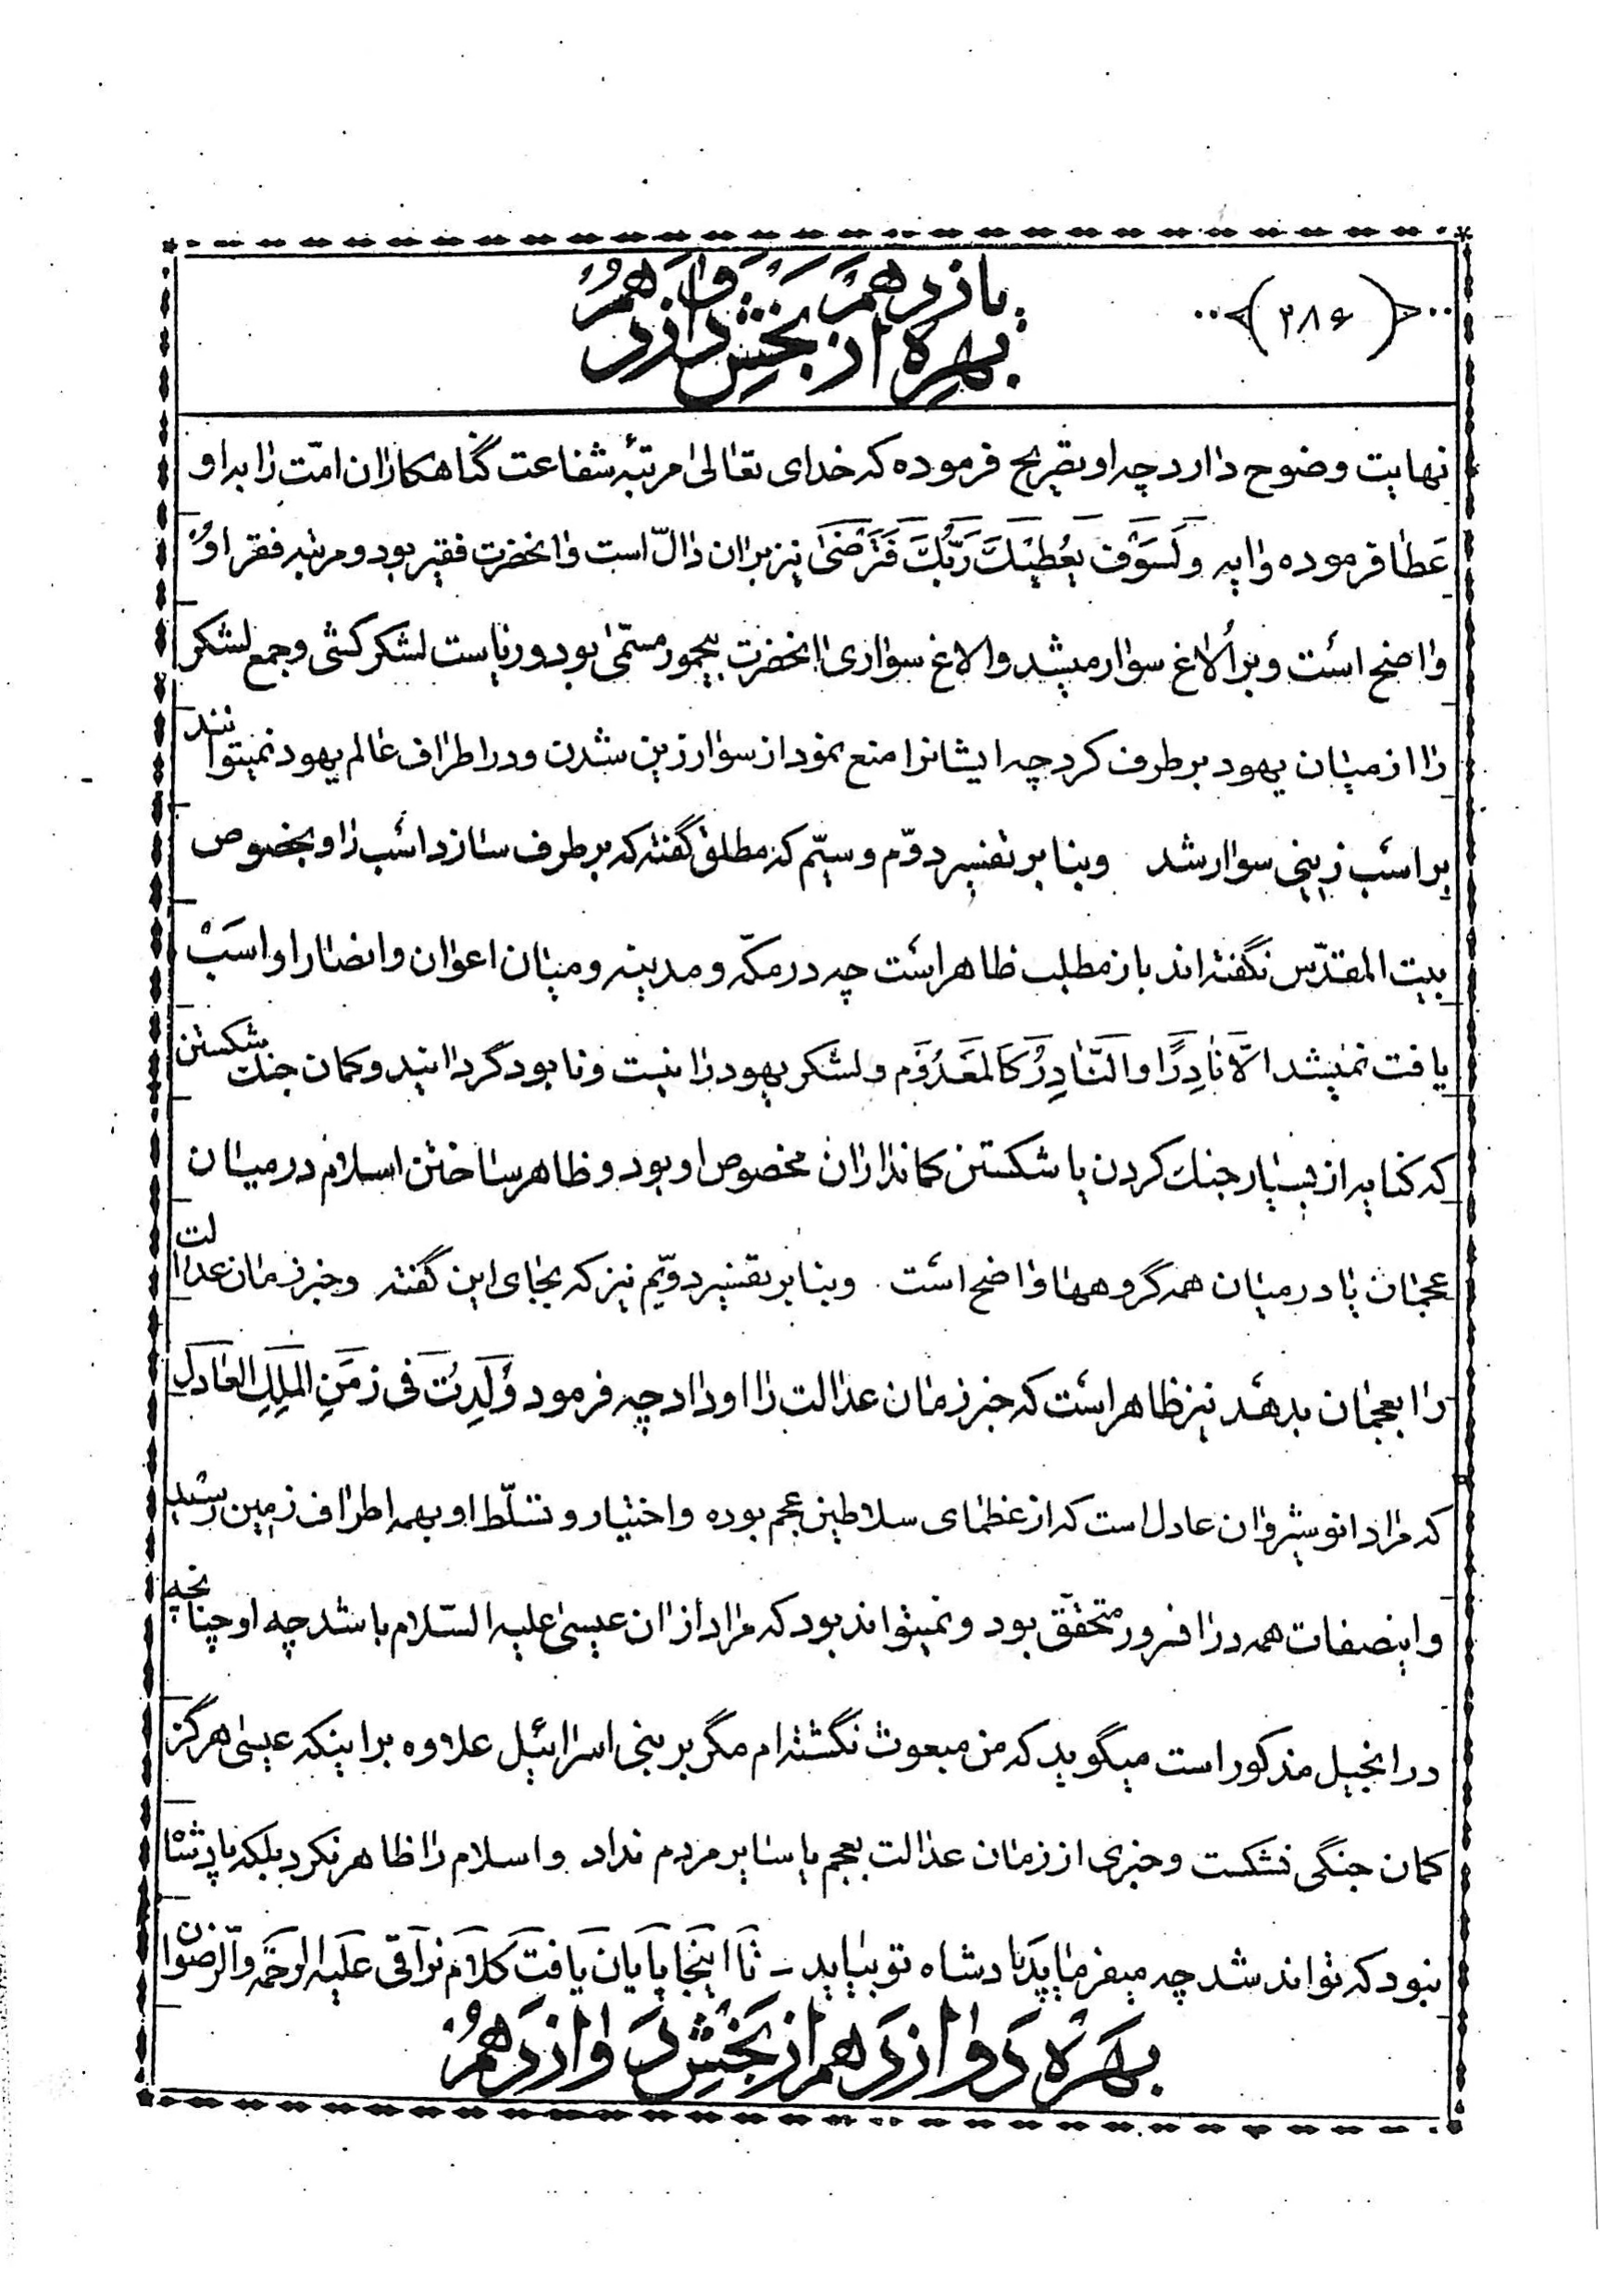 (۲۸۶)
بهره یازدهم از بخش دوازدهم
نهایت وضوح دارد چه او تصریح فرموده که خدای تعالی مرتبهٔ شفاعت گناهکاران امّت را به او
عَطا فرموده وایه وَلَسَوْفَ یُعْطِیْكَ رَبُّكَ فَتَرْضیٰ نیز بران دالّ است وانحضرت فقیر بود و مرتبه فقر او
واضح است و بر اُلاغ سوار میشد و الاغ سواری انحضرت بیحمور مسمّی بود و ریاست لشکر کشی و جمع لشکر
را از میان یهود بر طرف کرد چه ایشانرا منع نمود از سوار زین شدن و در اطراف عالم یهود نمیتوانند
بر اسب زینی سوار شد وبنا بر تفسیر دوّم و سیّم که مطلق گفته که بر طرف سازد اسب را و بخصوص
بیت المقدّس نگفته اند باز مطلب ظاهر است چه در مکّه و مدینه و میان اعوان و انصار او اسَبْ
یافت نمیشد الّا نادِرًا وَالنّادِرُ کَالمَعْدُوْم و لشکر یهود را نیست و نابود گردانید و کمان جنك شکستن
که کنایه از بسیار جنك کردن یا شکستن کمانداران مخصوص او بود و ظاهر ساختن اسلام در میان
عجمان یا در میان همه گروهها واضح است . وبنا بر تفسیر دویّم نیز که بجای این گفته وخبر زمان عدالت
را بعجمان بدهد نیز ظاهر است که خبر زمان عدالت را او داد چه فرمود وُلِدْتُ فی زَمَنِ المَلِكِ العَادِلِ
که مراد انوشیروان عادل است که از عظمای سلاطین عجم بوده و اختیار و تسلّط او بهمه اطراف زمین رسید
و اینصفات همه در انسرور متحقّق بود و نمیتواند بود که مراد از ان عیسی علیه السّلام باشد چه او چنانچه
در انجیل مذکور است میگوید که من مبعوث نگشته ام مگر بر بنی اسرائیل علاوه بر اینکه عیسی هرگز
کمان جنگی نشکست و خبری از زمان عدالت بعجم یا سایر مردم نداد و اسلام را ظاهر نکرد بلکه پادشاه
نبود که تواند شد چه میفرماید پادشاه تو بیاید - تَا اینجَا پَایَان یَافَت کَلَام نَرَاقی عَلَیْهِ الرَّحمَه وَالرّضوان
بَهرَهٔ دَوازدَهم از بَخشِ دَوازدَهُم